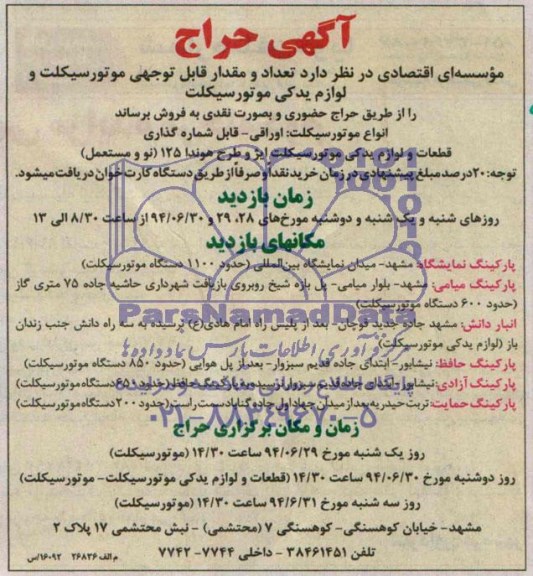 آگهی حراج
مؤسسه‌ای اقتصادی در نظر دارد تعداد و مقدار قابل توجهی موتورسیکلت و
لوازم یدکی موتورسیکلت
را از طریق حراج حضوری و بصورت نقدی به فروش برساند
انواع موتورسیکلت: اوراقی- قابل شماره گذاری
قطعات و لوازم یدکی موتورسیکلت ایژ و طرح هوندا ۱۲۵ (نو و مستعمل)
توجه: ۲۰درصد مبلغ پیشنهادی در زمان خرید نقدا و صرفا از طریق دستگاه کارت خوان دریافت میشود.
زمان بازدید
روزهای شنبه و یک شنبه و دوشنبه مورخ‌های ۲۸، ۲۹ و ۹۴/۰۶/۳۰ از ساعت ۸/۳۰ الی ۱۳
مکانهای بازدید
پارکینگ نمایشگاه: مشهد- میدان نمایشگاه بین‌المللی (حدود ۱۱۰۰ دستگاه موتورسیکلت)
پارکینگ میامی: مشهد- بلوار میامی- پل بازه شیخ روبروی بازیافت شهرداری حاشیه جاده ۷۵ متری گاز
(حدود ۶۰۰ دستگاه موتورسیکلت)
انبار دانش: مشهد جاده جدید قوچان- بعد از پلیس راه امام هادی(ع) نرسیده به سه راه دانش جنب زندان
باز (لوازم یدکی موتورسیکلت)
پارکینگ حافظ: نیشابور- ابتدای جاده قدیم سبزوار- بعد از پل هوایی (حدود ۸۵۰ دستگاه موتورسیکلت)
پارکینگ آزادی: نیشابور- ابتدای جاده قدیم سبزوار نرسیده به پارکینگ حافظ (حدود ۶۵۰ دستگاه موتورسیکلت)
پارکینگ حمایت: تربت حیدریه بعد از میدان جهاد اول جاده گناباد سمت راست (حدود ۲۰۰ دستگاه موتورسیکلت)
زمان و مکان برگزاری حراج
روز یک شنبه مورخ ۹۴/۰۶/۲۹ ساعت ۱۴/۳۰ (موتورسیکلت)
روز دوشنبه مورخ ۹۴/۰۶/۳۰ ساعت ۱۴/۳۰ (قطعات و لوازم یدکی موتورسیکلت- موتورسیکلت)
روز سه شنبه مورخ ۹۴/۶/۳۱ ساعت ۱۴/۳۰ (موتورسیکلت)
مشهد- خیابان کوهسنگی- کوهسنگی ۷ (محتشمی) - نبش محتشمی ۱۷ پلاک ۲
تلفن ۳۸۴۶۱۴۵۱ - داخلی ۷۷۴۴- ۷۷۴۲
م الف ۲۶۸۳۶ ۱۶۰۹۲/س
ParsNamadData
مرکز فرآوری اطلاعات پارس نماد داده‌ها
۰۲۱-۸۸۳۴۹۶۷۰-۵